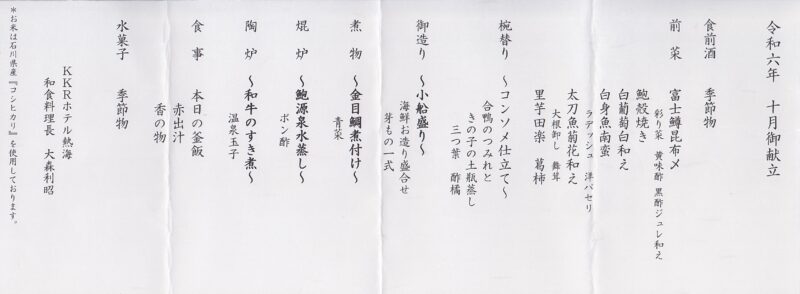 令和六年　十月御献立
食前酒　季節物
前菜　富士鱒昆布〆
彩り菜　黄味酢　黒酢ジュレ和え
鮑殻焼き
白葡萄白和え
白身魚南蛮
ラディッシュ　洋パセリ
太刀魚菊花和え
大根卸し　舞茸
里芋田楽　葛柿
椀替り　～コンソメ仕立て～
合鴨のつみれと
きの子の土瓶蒸し
三つ葉　酢橘
御造り　～小船盛り～
海鮮お造り盛合せ
芽もの一式
煮物　～金目鯛煮付け～
青菜
焜炉　～鮑源泉水蒸し～
ポン酢
陶炉　～和牛のすき煮～
温泉玉子
食事　本日の釜飯
赤出汁
香の物
水菓子　季節物
KKRホテル熱海
和食料理長　大森利昭
＊お米は石川県産『コシヒカリ』を使用しております。